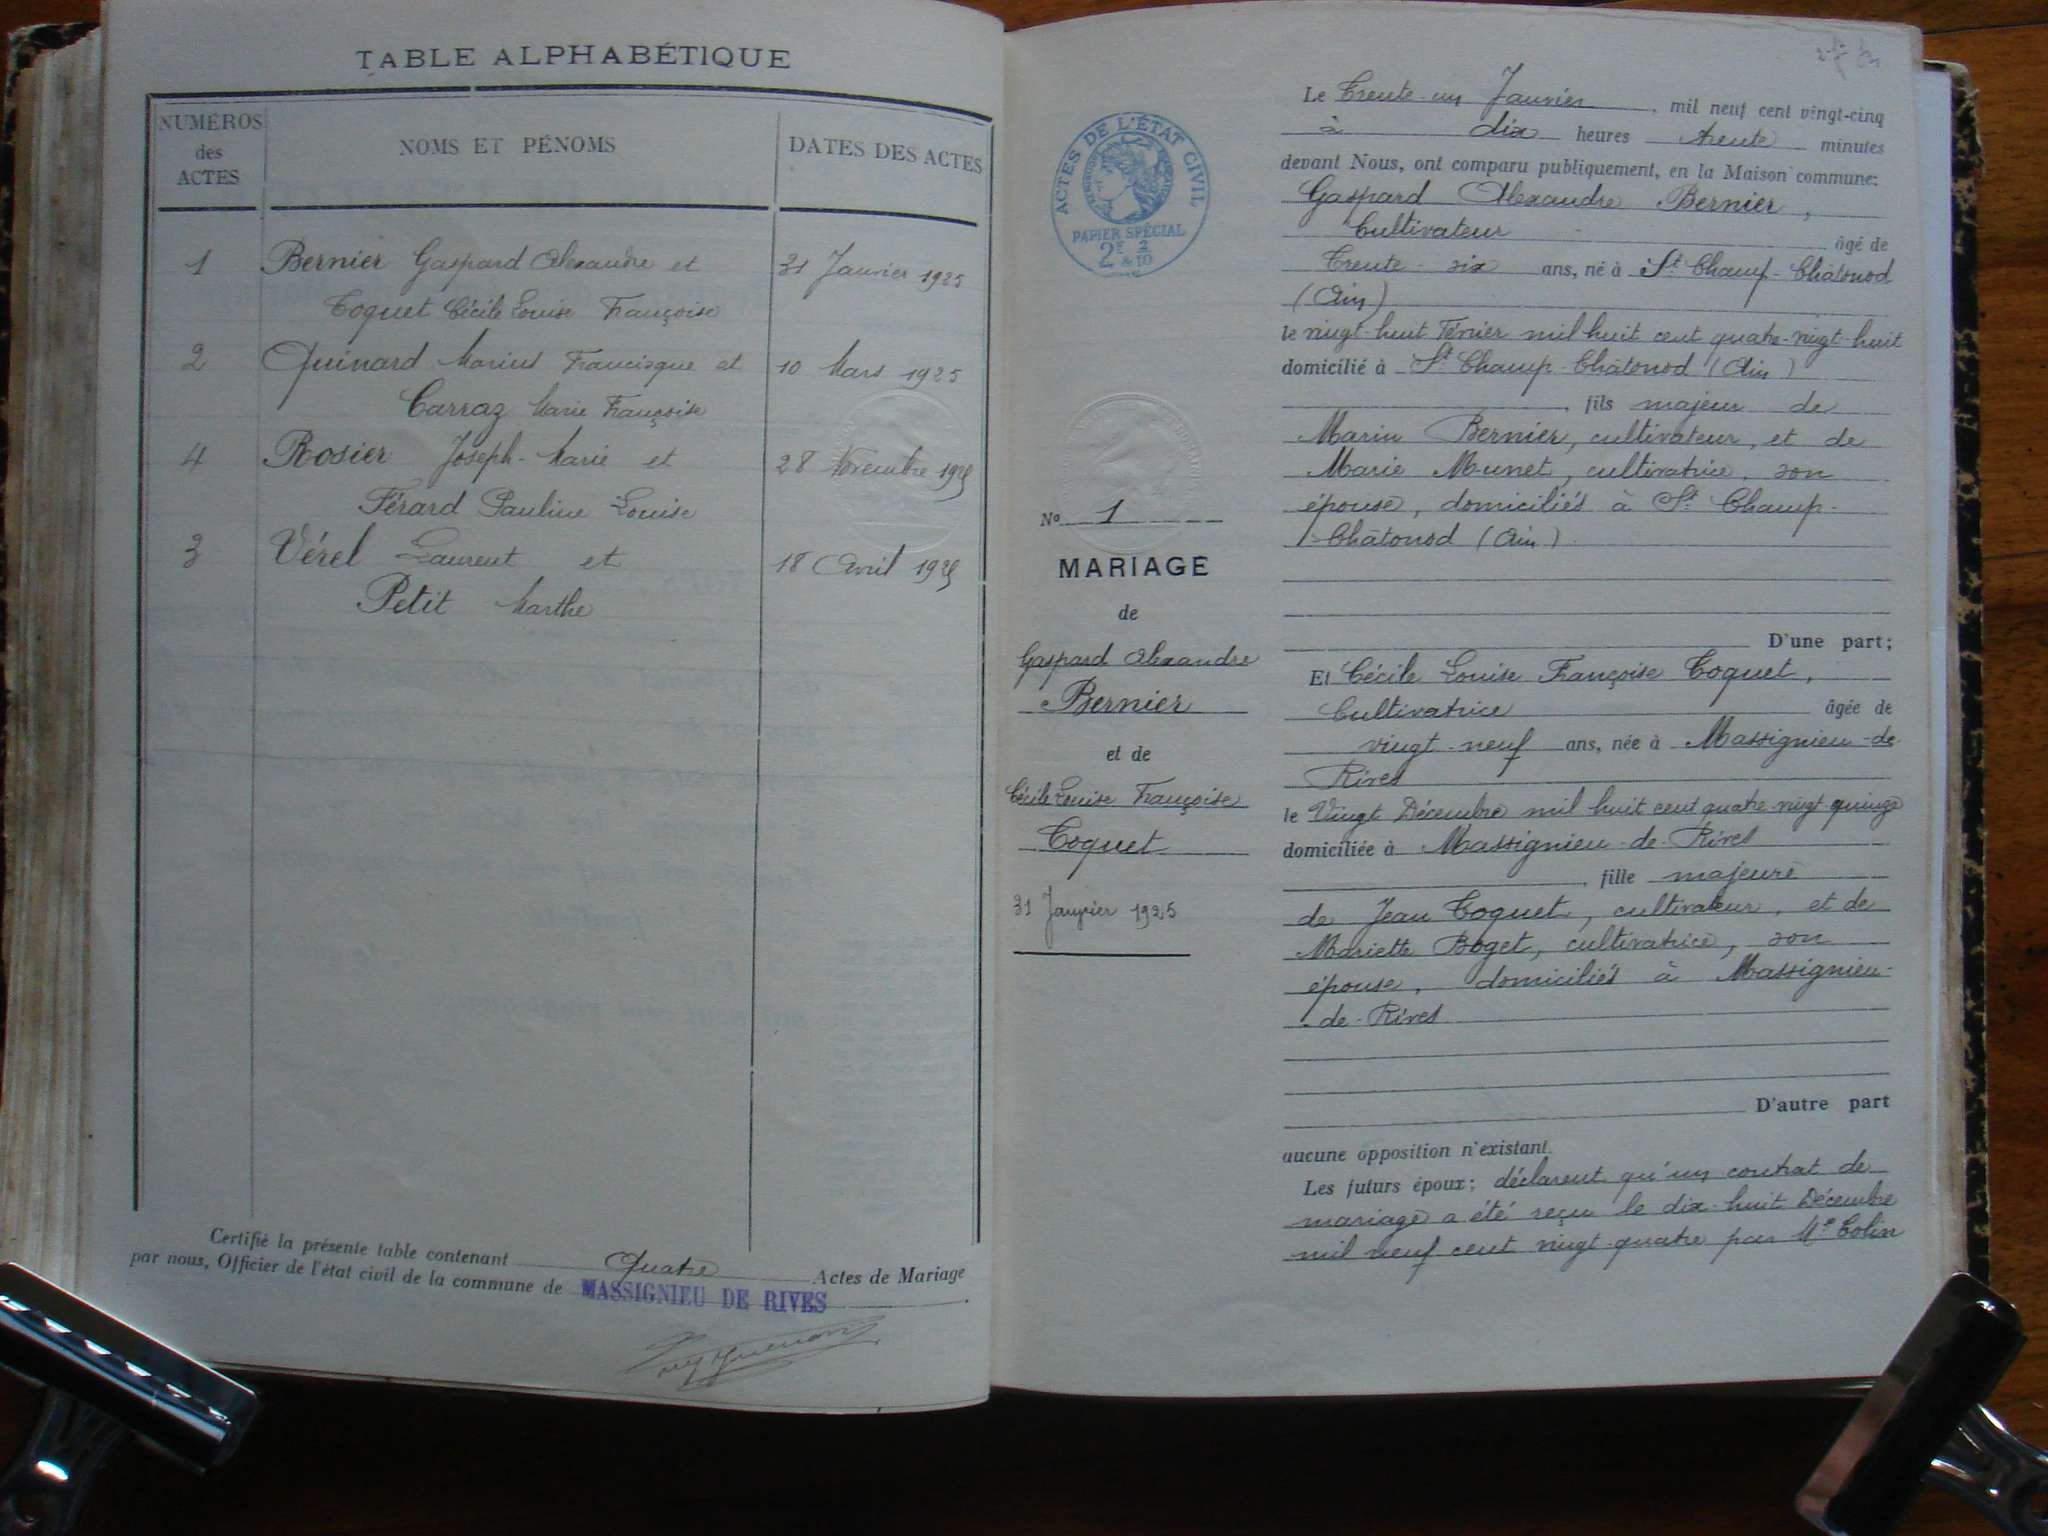 TABLE ALPHABÉTIQUE
NUMÉROS des ACTES
NOMS ET PÉNOMS
DATES DES ACTES
1 Bernier Gaspard Alexandre et 31 Janvier 1925
Coquet Cécile Louise Françoise
2 Quinard Marius Francisque et 10 Mars 1925
Carraz Marie Françoise
4 Rosier Joseph-Marie et 28 Novembre 1925
Férard Pauline Louise
3 Vérel Laurent et 18 Avril 1925
Petit Marthe
Certifié la présente table contenant Quatre Actes de Mariage
par nous, Officier de l'état civil de la commune de MASSIGNIEU DE RIVES
ACTES DE L'ÉTAT CIVIL
PAPIER SPÉCIAL
2F 2
&10
No 1
MARIAGE
de
Gaspard Alexandre
Bernier
et de
Cécile Louise Françoise
Coquet
31 Janvier 1925
Le Trente-un Janvier, mil neuf cent vingt-cinq
à dix heures trente minutes
devant Nous, ont comparu publiquement, en la Maison commune:
Gaspard Alexandre Bernier,
Cultivateur âgé de
Trente-six ans, né à St Champ-Châtonod
(Ain)
le vingt-huit Février mil huit cent quatre-vingt-huit
domicilié à St Champ-Châtonod (Ain)
, fils majeur de
Marin Bernier, cultivateur, et de
Marie Munet, cultivatrice, son
épouse, domiciliés à St Champ-
Châtonod (Ain)
D'une part;
Et Cécile Louise Françoise Coquet,
Cultivatrice âgée de
vingt-neuf ans, née à Massignieu-de-
Rives
le Vingt Décembre mil huit cent quatre-vingt-quinze
domiciliée à Massignieu-de-Rives
, fille majeure
de Jean Coquet, cultivateur, et de
Mariette Boget, cultivatrice, son
épouse, domiciliés à Massignieu-
-de-Rives
D'autre part
aucune opposition n'existant.
Les futurs époux; déclarent qu'un contrat de
mariage a été reçu le dix-huit Décembre
mil neuf cent vingt-quatre par Me Colin